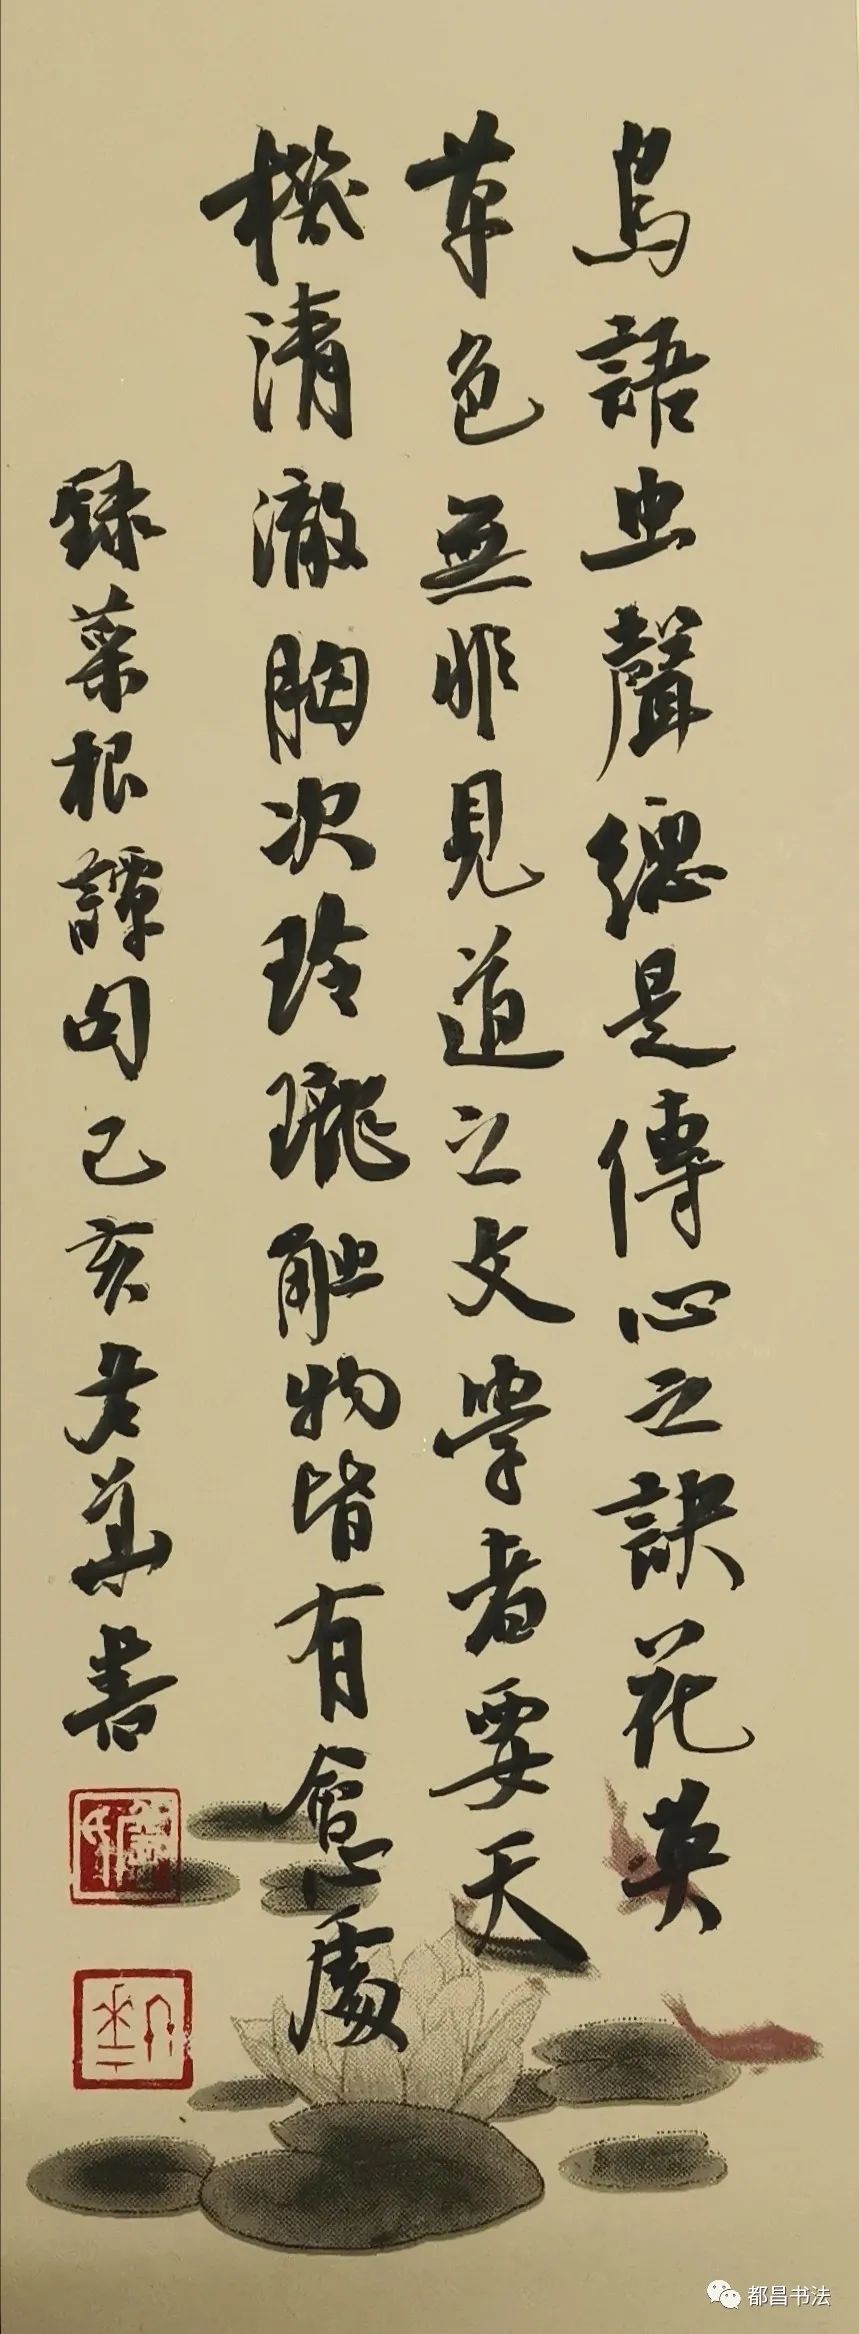 鳥語虫聲總是傳心之訣花英
草色無非見道之文學者要天
機清澈胸次玲瓏触物皆有會心處
録菜根譚句己亥書
都昌书法